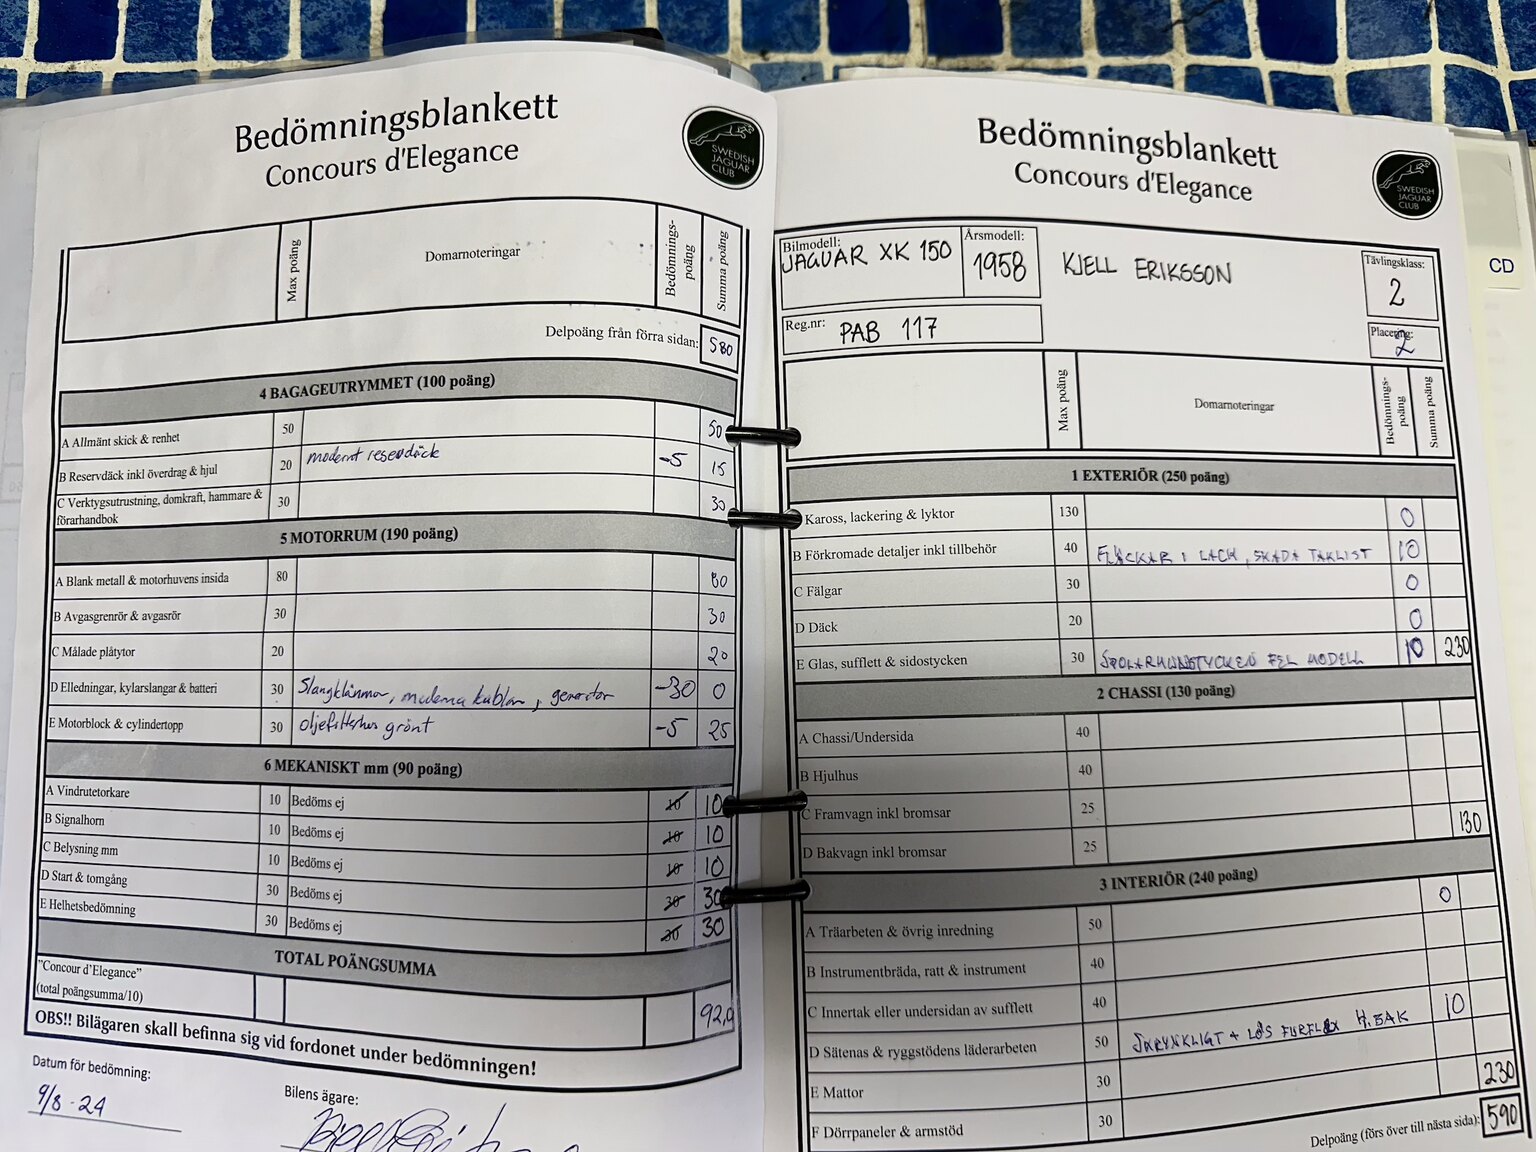 Bedömningsblankett
Concours d'Elegance
SWEDISH
JAGUAR
CLUB
Max poäng
Domarnoteringar
Bedömnings-
poäng
Summa poäng
Delpoäng från förra sidan: 580
4 BAGAGEUTRYMMET (100 poäng)
A Allmänt skick & renhet 50 50
B Reservdäck inkl överdrag & hjul 20 modernt reservdäck -5 15
C Verktygsutrustning, domkraft, hammare &
förarhandbok 30 30
5 MOTORRUM (190 poäng)
A Blank metall & motorhuvens insida 80 80
B Avgasgrenrör & avgasrör 30 30
C Målade plåtytor 20 20
D Elledningar, kylarslangar & batteri 30 Slangklämmor, moderna kablar, generator -30 0
E Motorblock & cylindertopp 30 oljefilterhus grönt -5 25
6 MEKANISKT mm (90 poäng)
A Vindrutetorkare 10 Bedöms ej 10 10
B Signalhorn 10 Bedöms ej 10 10
C Belysning mm 10 Bedöms ej 10 10
D Start & tomgång 30 Bedöms ej 30 30
E Helhetsbedömning 30 Bedöms ej 30 30
TOTAL POÄNGSUMMA
"Concour d'Elegance"
(total poängsumma/10) 92,0
OBS!! Bilägaren skall befinna sig vid fordonet under bedömningen!
Datum för bedömning:
9/8-24
Bilens ägare:
Bedömningsblankett
Concours d'Elegance
SWEDISH
JAGUAR
CLUB
CD
Bilmodell:
JAGUAR XK 150
Årsmodell:
1958
KJELL ERIKSSON
Tävlingsklass:
2
Reg.nr: PAB 117
Placering:
2
Max poäng
Domarnoteringar
Bedömnings-
poäng
Summa poäng
1 EXTERIÖR (250 poäng)
Kaross, lackering & lyktor 130 0
B Förkromade detaljer inkl tillbehör 40 FLÄCKAR I LACK, SKADA TAKLIST 10
C Fälgar 30 0
D Däck 20 0
E Glas, sufflett & sidostycken 30 SPOLARMUNSTYCKEN FEL MODELL 10 230
2 CHASSI (130 poäng)
A Chassi/Undersida 40
B Hjulhus 40
C Framvagn inkl bromsar 25 130
D Bakvagn inkl bromsar 25
3 INTERIÖR (240 poäng)
A Träarbeten & övrig inredning 50 0
B Instrumentbräda, ratt & instrument 40
C Innertak eller undersidan av sufflett 40
D Sätenas & ryggstödens läderarbeten 50 SKRYNKLIGT + LÖS FURFLEX H.BAK 10
E Mattor 30
F Dörrpaneler & armstöd 30 230
Delpoäng (förs över till nästa sida): 590